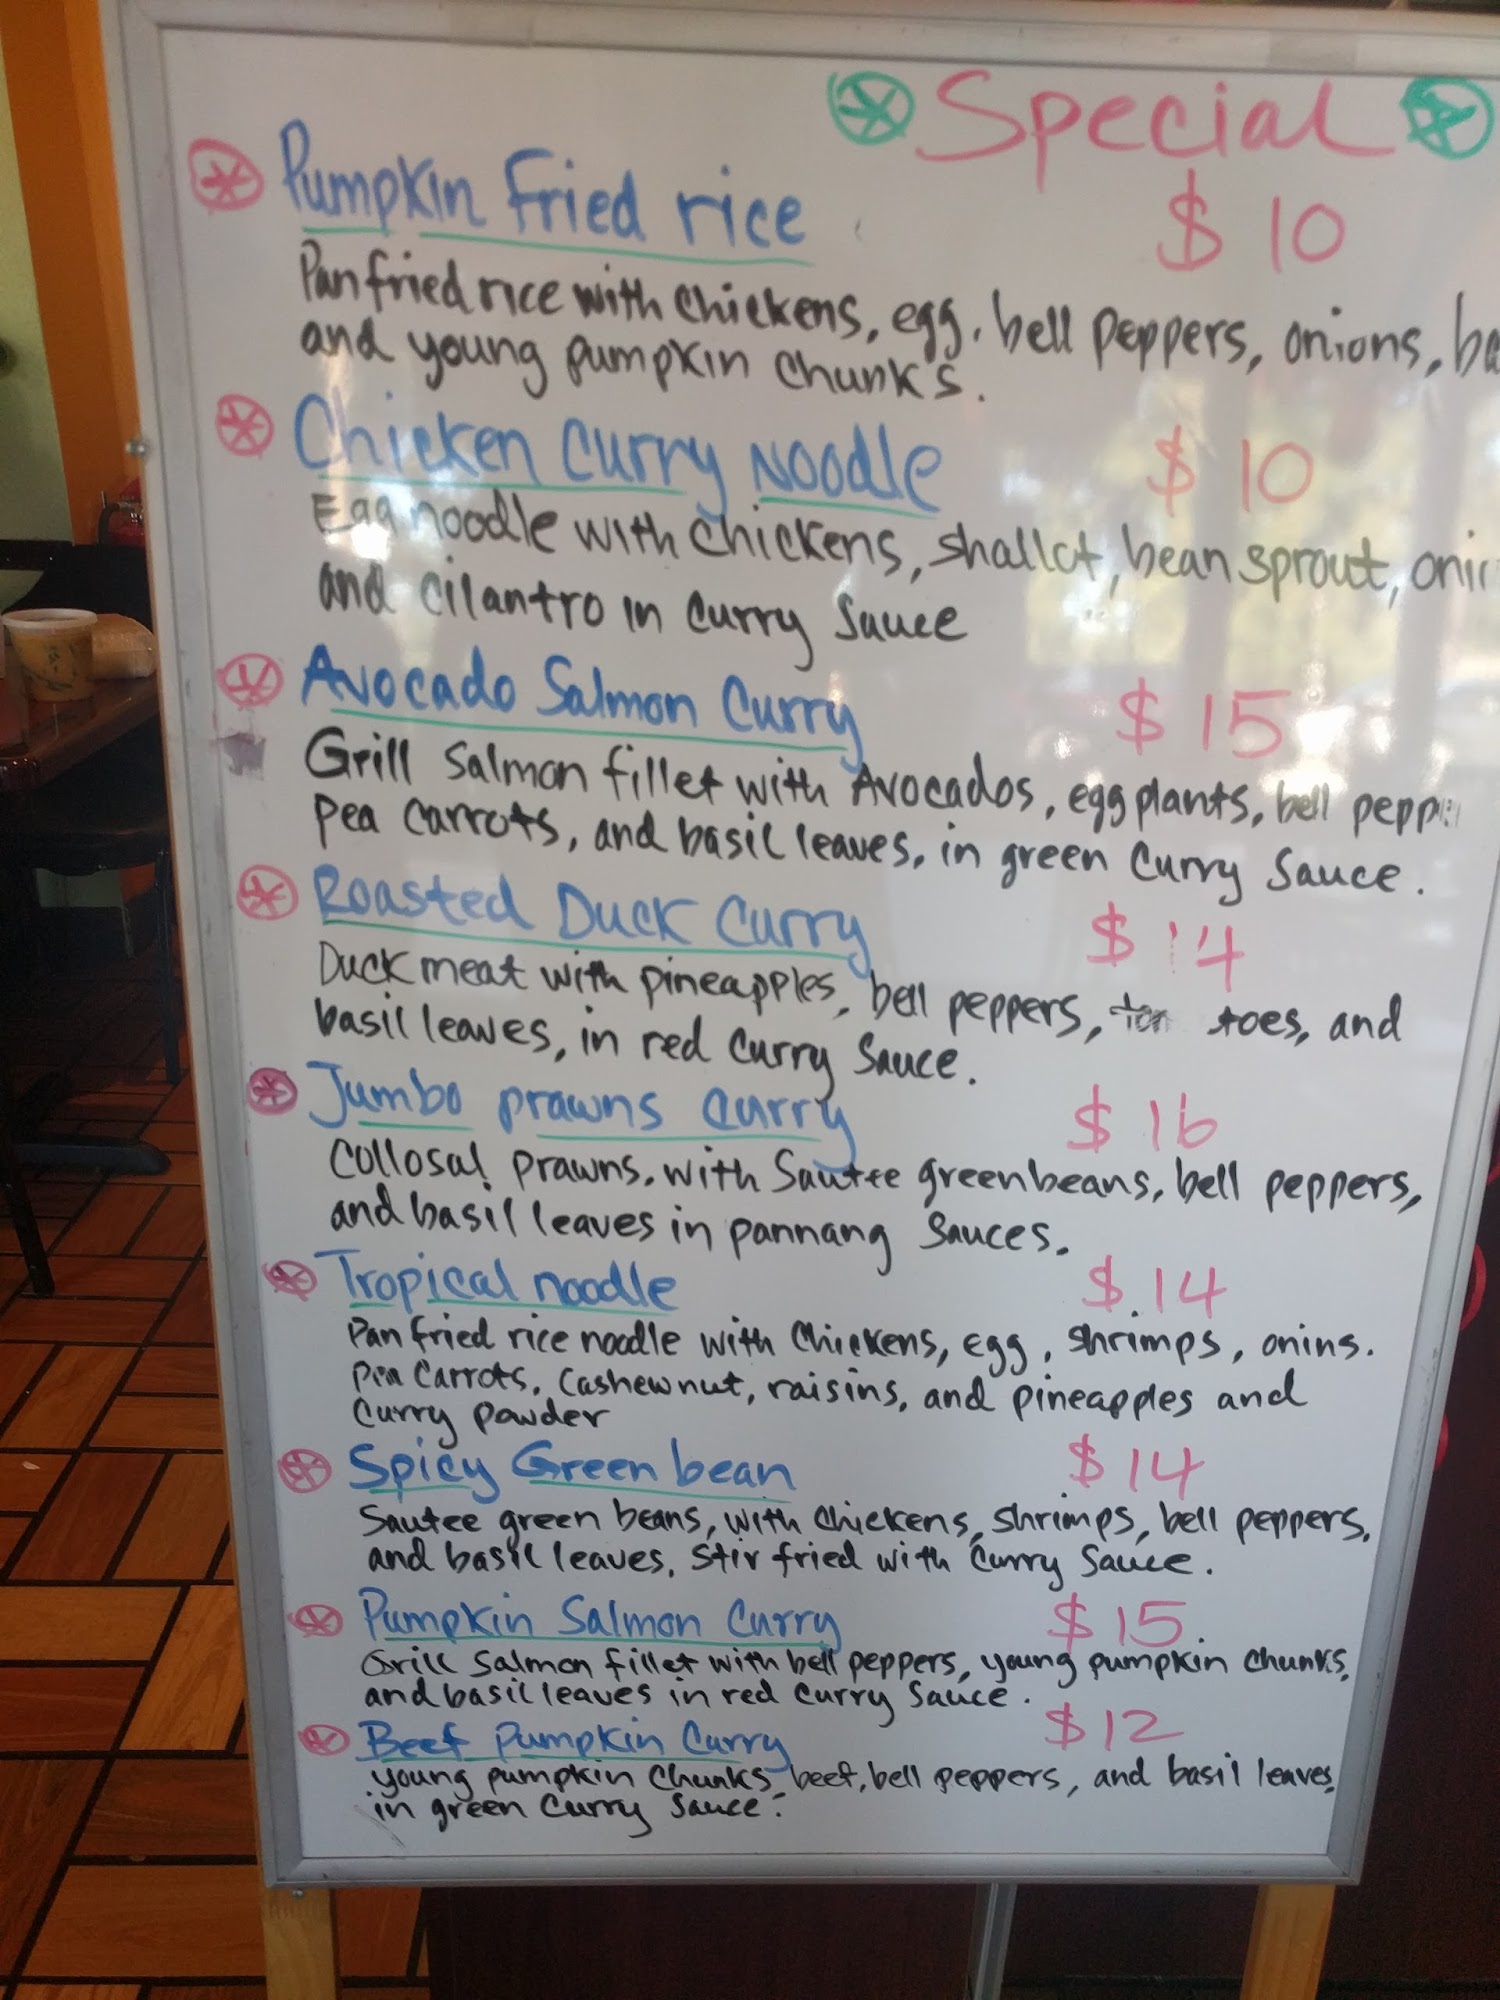 Special
Pumpkin Fried rice $10
Pan fried rice with chickens, egg, bell peppers, onions,
and young pumpkin chunks.
Chicken Curry Noodle $10
Egg noodle with chickens, shallot, bean sprout,
and cilantro in curry sauce
Avocado Salmon Curry $15
Grill Salmon fillet with Avocados, eggplants, bell
pea carrots, and basil leaves, in green curry sauce.
Roasted Duck Curry $14
Duck meat with pineapples, bell peppers, tom toes, and
basil leaves, in red curry sauce.
Jumbo prawns curry $16
Collosal prawns, with Sautee greenbeans, bell peppers,
and basil leaves in pannang sauces.
Tropical noodle $14
Pan fried rice noodle with chickens, egg, shrimps, onins.
Pea carrots, cashewnut, raisins, and pineapples and
curry powder
Spicy Green bean $14
Sautee green beans, with chickens, shrimps, bell peppers,
and basil leaves, stir fried with curry sauce.
Pumpkin Salmon Curry $15
Grill Salmon fillet with bell peppers, young pumpkin chunks,
and basil leaves in red curry sauce.
Beef Pumpkin Curry $12
young pumpkin chunks, beef, bell peppers, and basil leaves,
in green curry sauce.